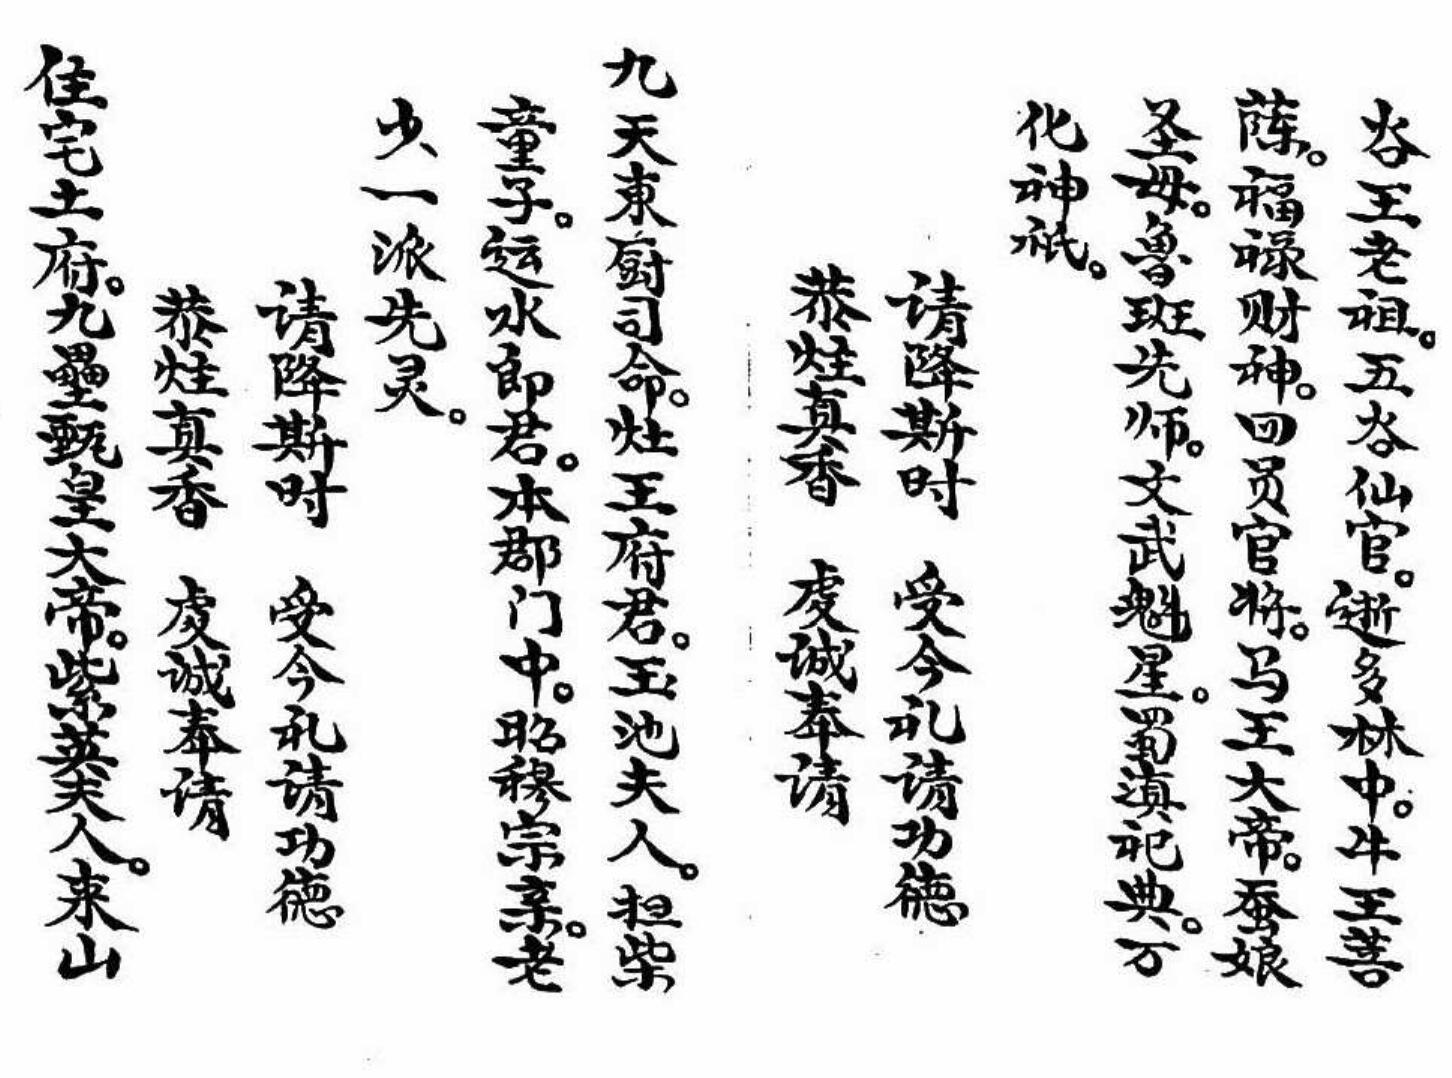 谷王老祖。五谷仙官。逝多林中。牛王菩
萨。福禄财神。四员官将。马王大帝。蚕娘
圣母。鲁班先师。文武魁星。蜀滇祀典。万
化神祇。
请降斯时　受今礼请功德
恭炷真香　虔诚奉请
九天東厨司命。灶王府君。玉池夫人。担柴
童子。运水郎君。本郡门中。昭穆宗亲。老
少一派先灵。
请降斯时　受今礼请功德
恭炷真香　虔诚奉请
住宅土府。九壘甄皇大帝。紫英夫人。来山